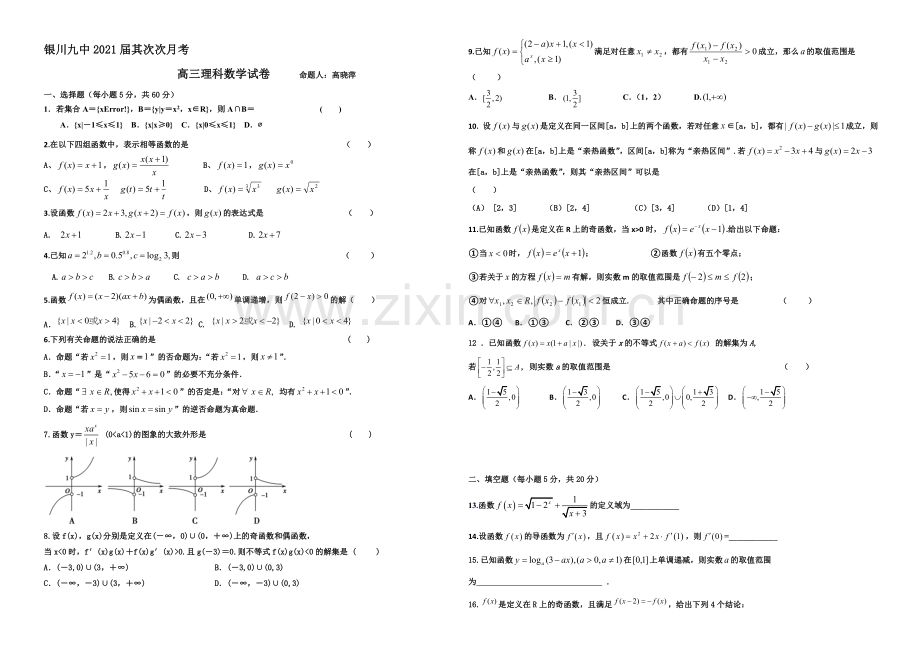 银川九中 2021 届其次次月考
高三理科数学试卷 命题人：高晓萍
一、选择题（每小题 5 分，共 60 分）
1. 若集合 A＝{xError!}，B＝{y|y＝x²，x∈R}，则 A∩B＝ ( )
A．{x|－1≤x≤1} B．{x|x≥0} C．{x|0≤x≤1} D．∅
2.在以下四组函数中，表示相等函数的是 ( )
A、f(x)=x+1，g(x)=x(x+1)/x B、f(x)=1，g(x)=x⁰
C、f(x)=5x+1/x g(t)=5t+1/t D、f(x)=∛x³ g(x)=√x²
3.设函数 f(x)=2x+3,g(x+2)=f(x)，则 g(x) 的表达式是 ( )
A. 2x+1 B.2x-1 C.2x-3 D.2x+7
4.已知 a=2^1.2,b=0.5^0.8,c=log₂3,则 ( )
A. a>b>c B.c>b>a C. c>a>b D. a>c>b
5.函数 f(x)=(x-2)(ax+b) 为偶函数，且在 (0,+∞) 单调递增，则 f(2-x)>0 的解 ( )
A．{x|x<0或x>4} B.{x|-2<x<2} C. {x|x>2或x<-2} D. {x|0<x<4}
6.下列有关命题的说法正确的是 ( )
A．命题“若 x²=1，则 x＝1”的否命题为：“若 x²=1，则 x≠1”.
B．“x=-1”是“x²-5x-6=0”的必要不充分条件.
C．命题“∃x∈R,使得 x²+x+1<0”的否定是：“对∀x∈R, 均有 x²+x+1<0”.
D．命题“若 x=y，则 sin x=sin y”的逆否命题为真命题.
7.函数 y＝xa^x/|x| (0<a<1)的图象的大致外形是 ( )
y 1 O －1 x
y 1 O －1 x
y 1 O －1 x
y 1 O －1 x
A B C D
8.设 f(x)，g(x)分别是定义在(－∞，0)∪(0，＋∞)上的奇函数和偶函数，
当 x<0 时，f′(x)g(x)＋f(x)g′(x)>0.且 g(－3)＝0.则不等式 f(x)g(x)<0 的解集是 ( )
A．(－3,0)∪(3，＋∞) B．(－3,0)∪(0,3)
C．(－∞，－3)∪(3，＋∞) D．(－∞，－3)∪(0,3)
9.已知 f(x)={(2-a)x+1,(x<1) a^x,(x≥1) 满足对任意 x₁≠x₂，都有 (f(x₁)-f(x₂))/(x₁-x₂)>0 成立，那么 a 的取值范围是
( )
A．[3/2,2) B．(1,3/2] C．（1，2） D.(1,+∞)
10. 设 f(x) 与 g(x) 是定义在同一区间[a，b]上的两个函数，若对任意 x∈[a，b]，都有 |f(x)-g(x)|≤1 成立，则
称 f(x) 和 g(x) 在[a，b]上是“亲热函数”，区间[a，b]称为“亲热区间”.若 f(x)=x²-3x+4 与 g(x)=2x-3
在[a，b]上是“亲热函数”，则其“亲热区间”可以是
( )
（A）[2，3] （B）[2，4] （C）[3，4] （D）[1，4]
11.已知函数 f(x) 是定义在 R 上的奇函数，当 x>0 时，f(x)=e^-x(x-1).给出以下命题：
①当 x<0 时，f(x)=e^x(x+1)； ②函数 f(x) 有五个零点；
③若关于 x 的方程 f(x)=m 有解，则实数 m 的取值范围是 f(-2)≤m≤f(2)；
④对 ∀x₁,x₂∈R,|f(x₂)-f(x₁)|<2 恒成立． 其中正确命题的序号是 ( )
A．①④ B．①③ C．②③ D．③④
12 ．已知函数 f(x)=x(1+a|x|)．设关于 x 的不等式 f(x+a)<f(x) 的解集为 A,
若 [-1/2,1/2]⊆A, 则实数 a 的取值范围是 ( )
A．((1-√5)/2,0) B．((1-√3)/2,0) C．((1-√5)/2,0)∪(0,(1+√3)/2) D．(-∞,(1-√5)/2)
二、填空题（每小题 5 分，共 20 分）
13.函数 f(x)=√(1-2^x)+1/√(x+3) 的定义域为____________
14.设函数 f(x) 的导函数为 f′(x)，且 f(x)=x²+2x·f′(1)，则 f′(0)=____________
15.已知函数 y=log_a(3-ax),(a>0,a≠1) 在 [0,1] 上单调递减，则实数 a 的取值范围
为____________________________．
16. f(x) 是定义在 R 上的奇函数，且满足 f(x-2)=-f(x)，给出下列 4 个结论：